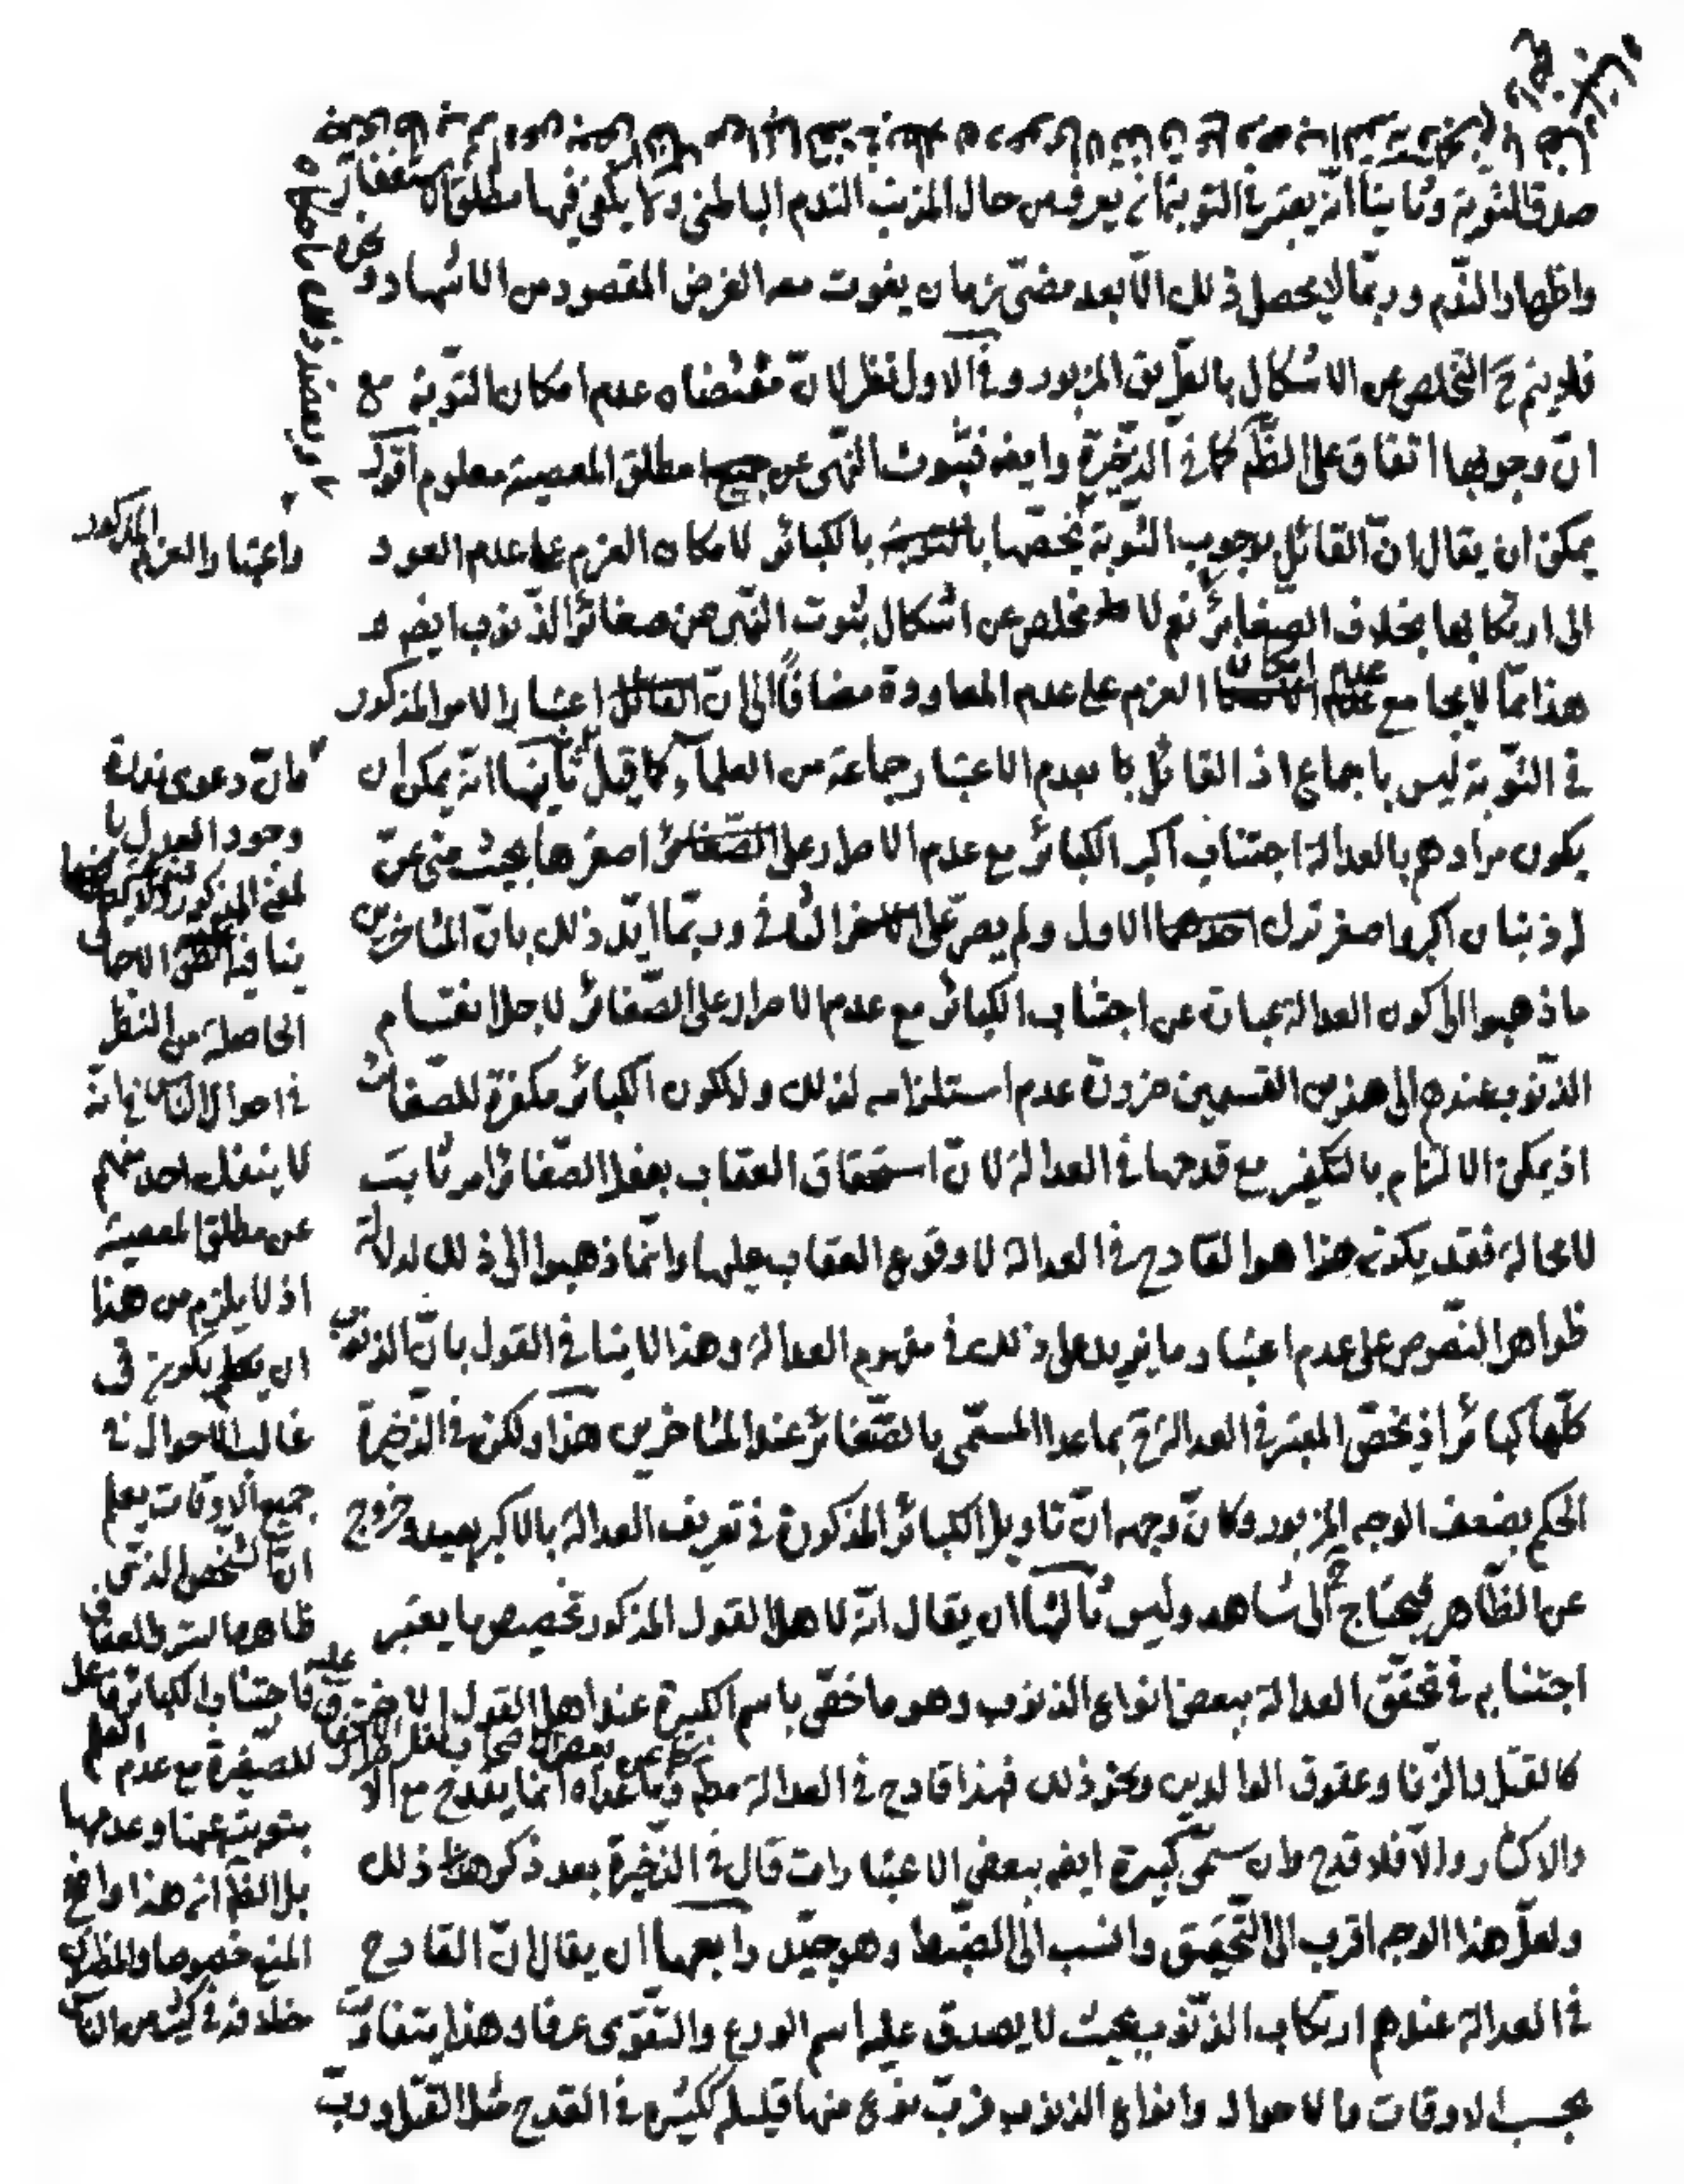 صدق التوبة وثانيا انّه يعتبر في التوبة ان يعرف من حال المذنب الندم الباطني ولا يكفي فيها مطلق الاستغفار
واظهار الندم وربّما لا يحصل ذلك الّا بعد مضيّ زمان يفوت معه الغرض المقصود من الاشهاد ونحوه
فلا يتم ح التخلص عن الاشكال بالطريق المزبور وفي الاول نظر لانّ مقتضاه عدم امكان التوبة مع
انّ وجوبها اتفاق على الظّم كما في الذخيرة وايضه فثبوت النهى عن مطلق المعصية معلوم اقول
يمكن ان يقال انّ القائل بوجوب التّوبة يخصّها بالكبائر لامكان العزم على عدم العود
الى ارتكابها بخلاف الصّغاير نعم لا مخلص عن اشكال ثبوت النّهى عن صغائر الذّنوب ايضه و
هذا ممّا لا يجامع عدم امكان العزم على عدم المعاودة مضافًا الى انّ اعتبار الامر المذكور
في التّوبة ليس باجماع اذ القائل بعدم الاعتبار جماعة من العلماء كما قيل ثانيها انّه يمكن ان
يكون مرادهم بالعدالة اجتناب اكبر الكبائر مع عدم الاصرار على اصغرها بحيث متى عنّ
له ذنبان اكبر واصغر ترك الاول ولم يصرّ على الثاني وربّما ايّد ذلك بانّ المتاخرين
ما ذهبوا الى كون العدالة عبارة عن اجتناب الكبائر مع عدم الاصرار على الصّغائر لاجل انقسام
الذّنوب عندهم الى هذين القسمين ضرورة عدم استلزامه لذلك ولا لكون الكبائر مكفرة للصّغائر
اذ يمكن الالتزام بالتكفير مع قدحها في العدالة لانّ استحقاق العقاب بفعل الصّغائر امر ثابت
لا محالة فقد يكون هذا هو القادح في العدالة لا وقوع العقاب عليها وانّما ذهبوا الى ذلك لدلالة
ظواهر النّصوص على عدم اعتبار ما يزيد على ذلك في مفهوم العدالة وهذا لا ينافي القول بانّ الذنوب
كلّها كبائر اذ يخصّ المعتبر في العدالة ح بما عدا المسمّى بالصّغائر عند المتاخرين هذا ولكن في الذّخيرة
الحكم بضعف الوجه المزبور وكانّ وجهه انّ تاويل الكبائر المذكورة في تعريف العدالة بالاكبر بعيد وخروج
عن الظّاهر فيحتاج الى شاهد وليس ثالثها ان يقال انّه لاهل القول المذكور تخصيص ما يعتبر
اجتنابه في تحقّق العدالة ببعض انواع الذنوب وهو ما خصّ باسم الكبيرة عند اهل القول الاخر
كالقتل والزّنا وعقوق الوالدين ونحو ذلك فهذا قادح في العدالة مطم وما عداه انّما يقدح مع
والاكثار والّا فلا قدح وان سمّى كبيرة ايضه ببعض الاعتبارات قال في الذّخيرة بعد ذكر ذلك
ولعلّ هذا الوجه اقرب الى التّحقيق وانسب الى الضّبط وهو جيّد رابعها ان يقال انّ القادح
في العدالة عندهم ارتكاب الذّنوب بحيث لا يصدق عليه اسم الورع والتّقوى عرفا وهذا يتفاوت
بحسب الاوقات والاحوال وانواع الذنوب فربّ نوع منها قليله ككثيره في القدح مثل القتل وربّ
واعتبار العزم المذكور
فانّ دعوى ندرة
وجود العدل با
لمعنى المذكور
ينافيه الاجمالي
الحاصل من النظر
في احوال النّاس في انّه
لا ينفك احد منهم
عن مطلق المعصية
اذ لا يلزم من هذا
ان يكون في
غالب الاحوال في
جميع الاوقات يعلم
انّ الشّخص الذي
ظاهره الستر والعفاف
فاجتناب الكبائر فاعل
للصّغيرة مع عدم العلم
بتوبته عنها وعدمها
بل الظّم انّ هذا واضح
المنع خصوصا والمظنون
خلافه في كثير من النّاس